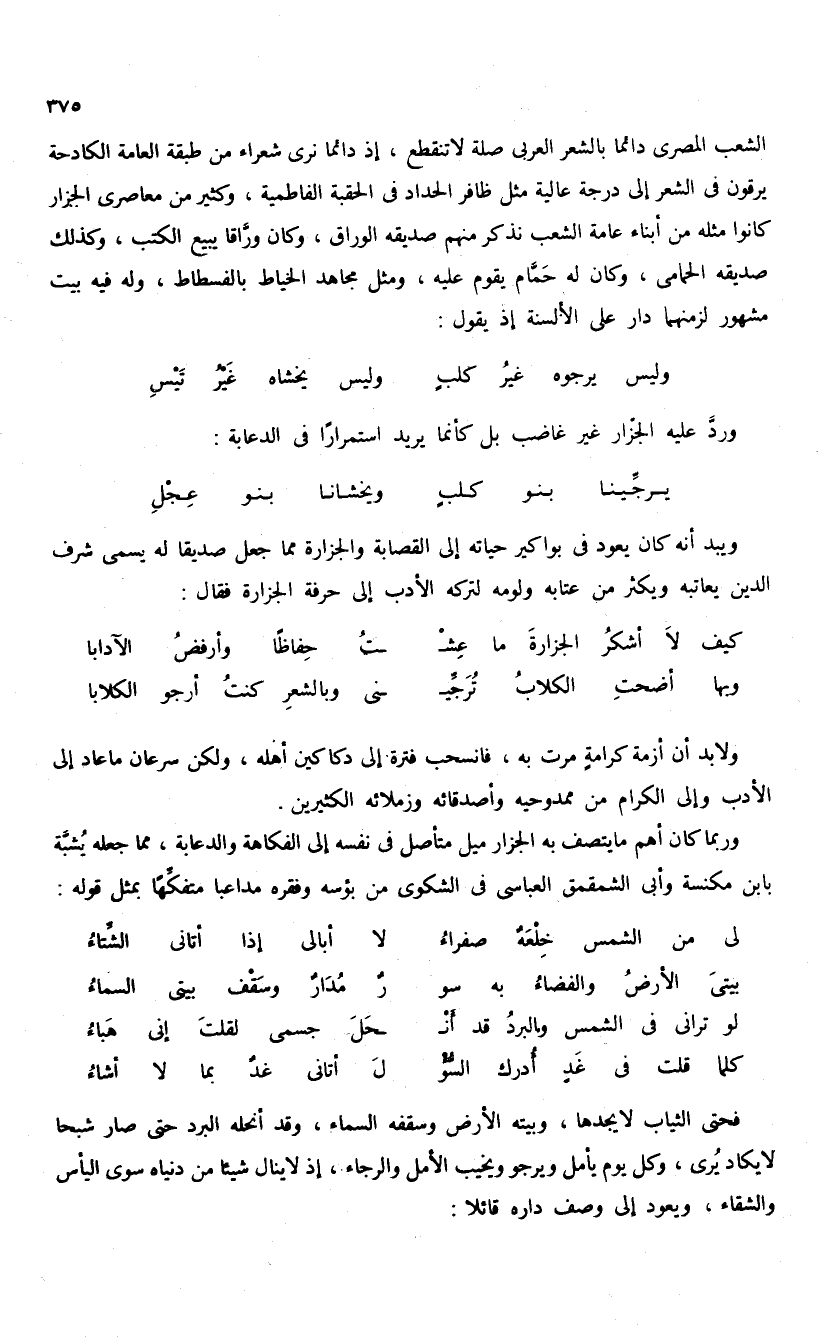 ٣٧٥
الشعب المصرى دائما بالشعر العربى صلة لاتنقطع ، إذ دائما نرى شعراء من طبقة العامة الكادحة
يرقون فى الشعر إلى درجة عالية مثل ظافر الحداد فى الحقبة الفاطمية ، وكثير من معاصرى الجزار
كانوا مثله من أبناء عامة الشعب نذكر منهم صديقه الوراق ، وكان ورَّاقا يبيع الكتب ، وكذلك
صديقه الحمامى ، وكان له حَمَّام يقوم عليه ، ومثل مجاهد الخياط بالفسطاط ، وله فيه بيت
مشهور لزمنهما دار على الألسنة إذ يقول :
وليس يرجوه غيرُ كلبٍ وليس يخشاه غَيْرُ تَيْسِ
وردَّ عليه الجزّار غير غاضب بل كأنما يريد استمرارًا فى الدعابة :
يـرجِّـينـا بـنـو كـلـبٍ ويخشـانـا بـنـو عِـجْـلِ
ويبد أنه كان يعود فى بواكير حياته إلى القصابة والجزارة مما جعل صديقا له يسمى شرف
الدين يعاتبه ويكثر من عتابه ولومه لتركه الأدب إلى حرفة الجزارة فقال :
كيف لاَ أشكرُ الجزارةَ ما عِشْـ ـتُ حِفاظًا وأرفضُ الآدابا
وبها أضحتِ الكلابُ تُرَجِّيـ ـنى وبالشعرِ كنتُ أرجو الكلابا
ولابد أن أزمة كرامةٍ مرت به ، فانسحب فترة إلى دكاكين أهله ، ولكن سرعان ماعاد إلى
الأدب وإلى الكرام من ممدوحيه وأصدقائه وزملائه الكثيرين .
وربما كان أهم مايتصف به الجزار ميل متأصل فى نفسه إلى الفكاهة والدعابة ، مما جعله يُشبَّة
بابن مكنسة وأبى الشمقمق العباسى فى الشكوى من بؤسه وفقره مداعبا متفكِّهًا بمثل قوله :
لى من الشمس خِلْعَةٌ صفراءُ لا أبالى إذا أتانى الشَّتاءُ
بيتىَ الأرضُ والفضاءُ به سو رٌ مُدَارٌ وسَقْف بيتى السماءُ
لو ترانى فى الشمس والبردُ قد أَنْـ ـحَلَ جسمى لقلتَ إنى هَباءُ
كلما قلت فى غَدٍ أُدرك السؤْ لَ أتانى غدٌ بما لا أشاءُ
فحتى الثياب لايجدها ، وبيته الأرض وسقفه السماء ، وقد أنحله البرد حتى صار شبحا
لايكاد يُرى ، وكل يوم يأمل ويرجو ويخيب الأمل والرجاء ، إذ لاينال شيئا من دنياه سوى اليأس
والشقاء ، ويعود إلى وصف داره قائلا :